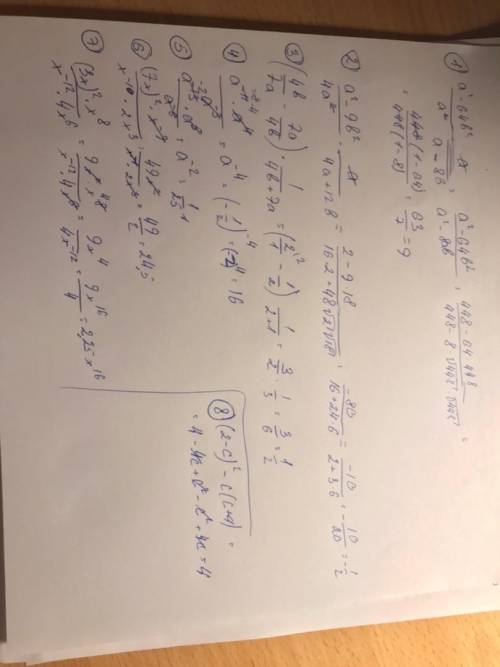 ① (a² - 64b²)/a² · a/(a - 8b) = (a² - 64b²)/(a² - 8ab) = (448 - 64 · 448)/(448 - 8 √448 · √448) =
= 448(1 - 64)/448(1 - 8) = 63/7 = 9
② (a² - 9b²)/4a² · a/(4a + 12b) = (2 - 9 · 18)/(16 · 2 + 48 √2 √18) = -80/(16 + 24 · 6) = -10/(2 + 3 6) = -10/20 = -1/2
③ (4b/7a - 7a/4b) · 1/(4b + 7a) = (2/1 - 1/2) 1/(2+1) = 3/2 · 1/3 = 3/6 = 1/2
④ = a⁻⁴ = (-1/2)⁻⁴ = (-2)⁴ = 16
⑤ = a⁻² = 1/25
⑥ (7x)² · x⁻⁸/(x⁻¹⁰ · 2x³) = 49/2 = 24,5
⑦ (3x)² · x⁸/(x⁻¹² · 4x⁶) = 9x⁴/4x⁻¹² = 9x¹⁶/4 = 2,25x¹⁶
⑧ (2-c)² - c(c+4) =
= 4 - 4c + c² - c² + 4c = 4